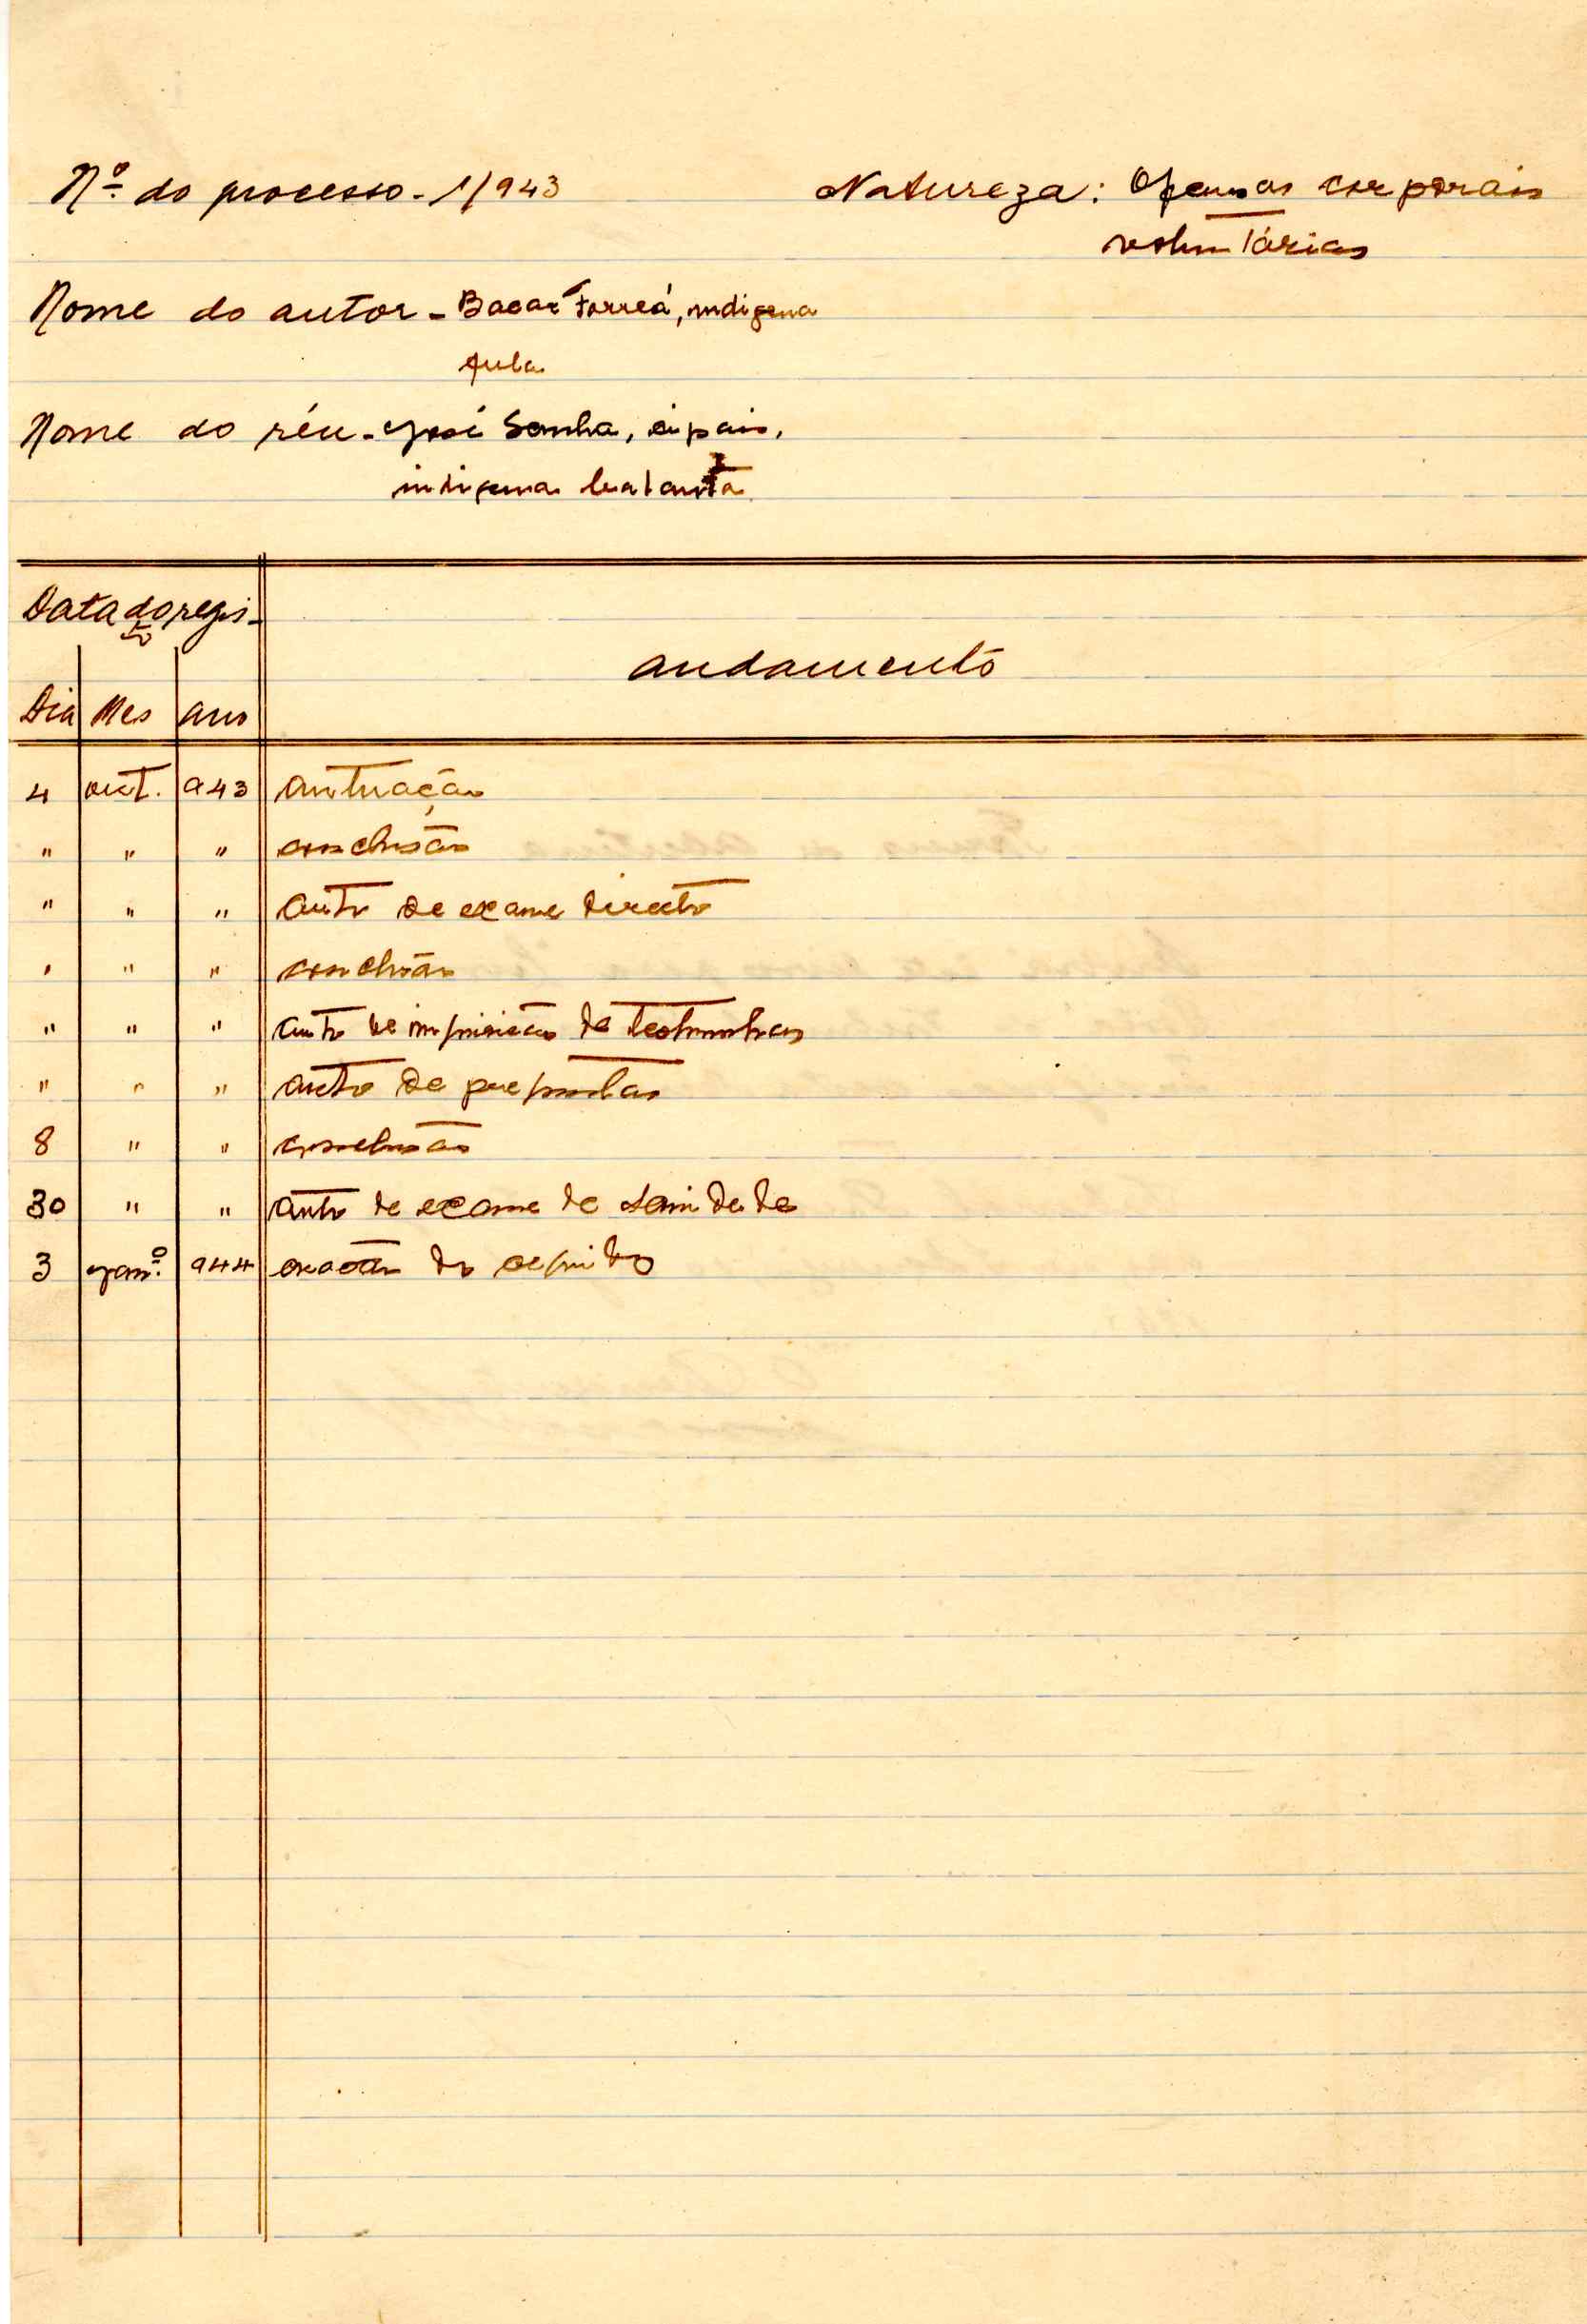 Nº do processo - 1/943
Natureza: Ofensas corporais
voluntárias
Nome do autor - Bacar, indigena
fula
Nome do réu - José Sanha, cipaio,
indigena balanta
Data do regis-
to
andamento
Dia Mes ano
4 out. 943 autuação
" " " conclusão
" " " auto de exame directo
" " " conclusão
" " " auto de inquirição de testemunhas
" " " auto de preguntas
8 " " conclusão
30 " " auto de exame de sanidade
3 jan.º 944 do